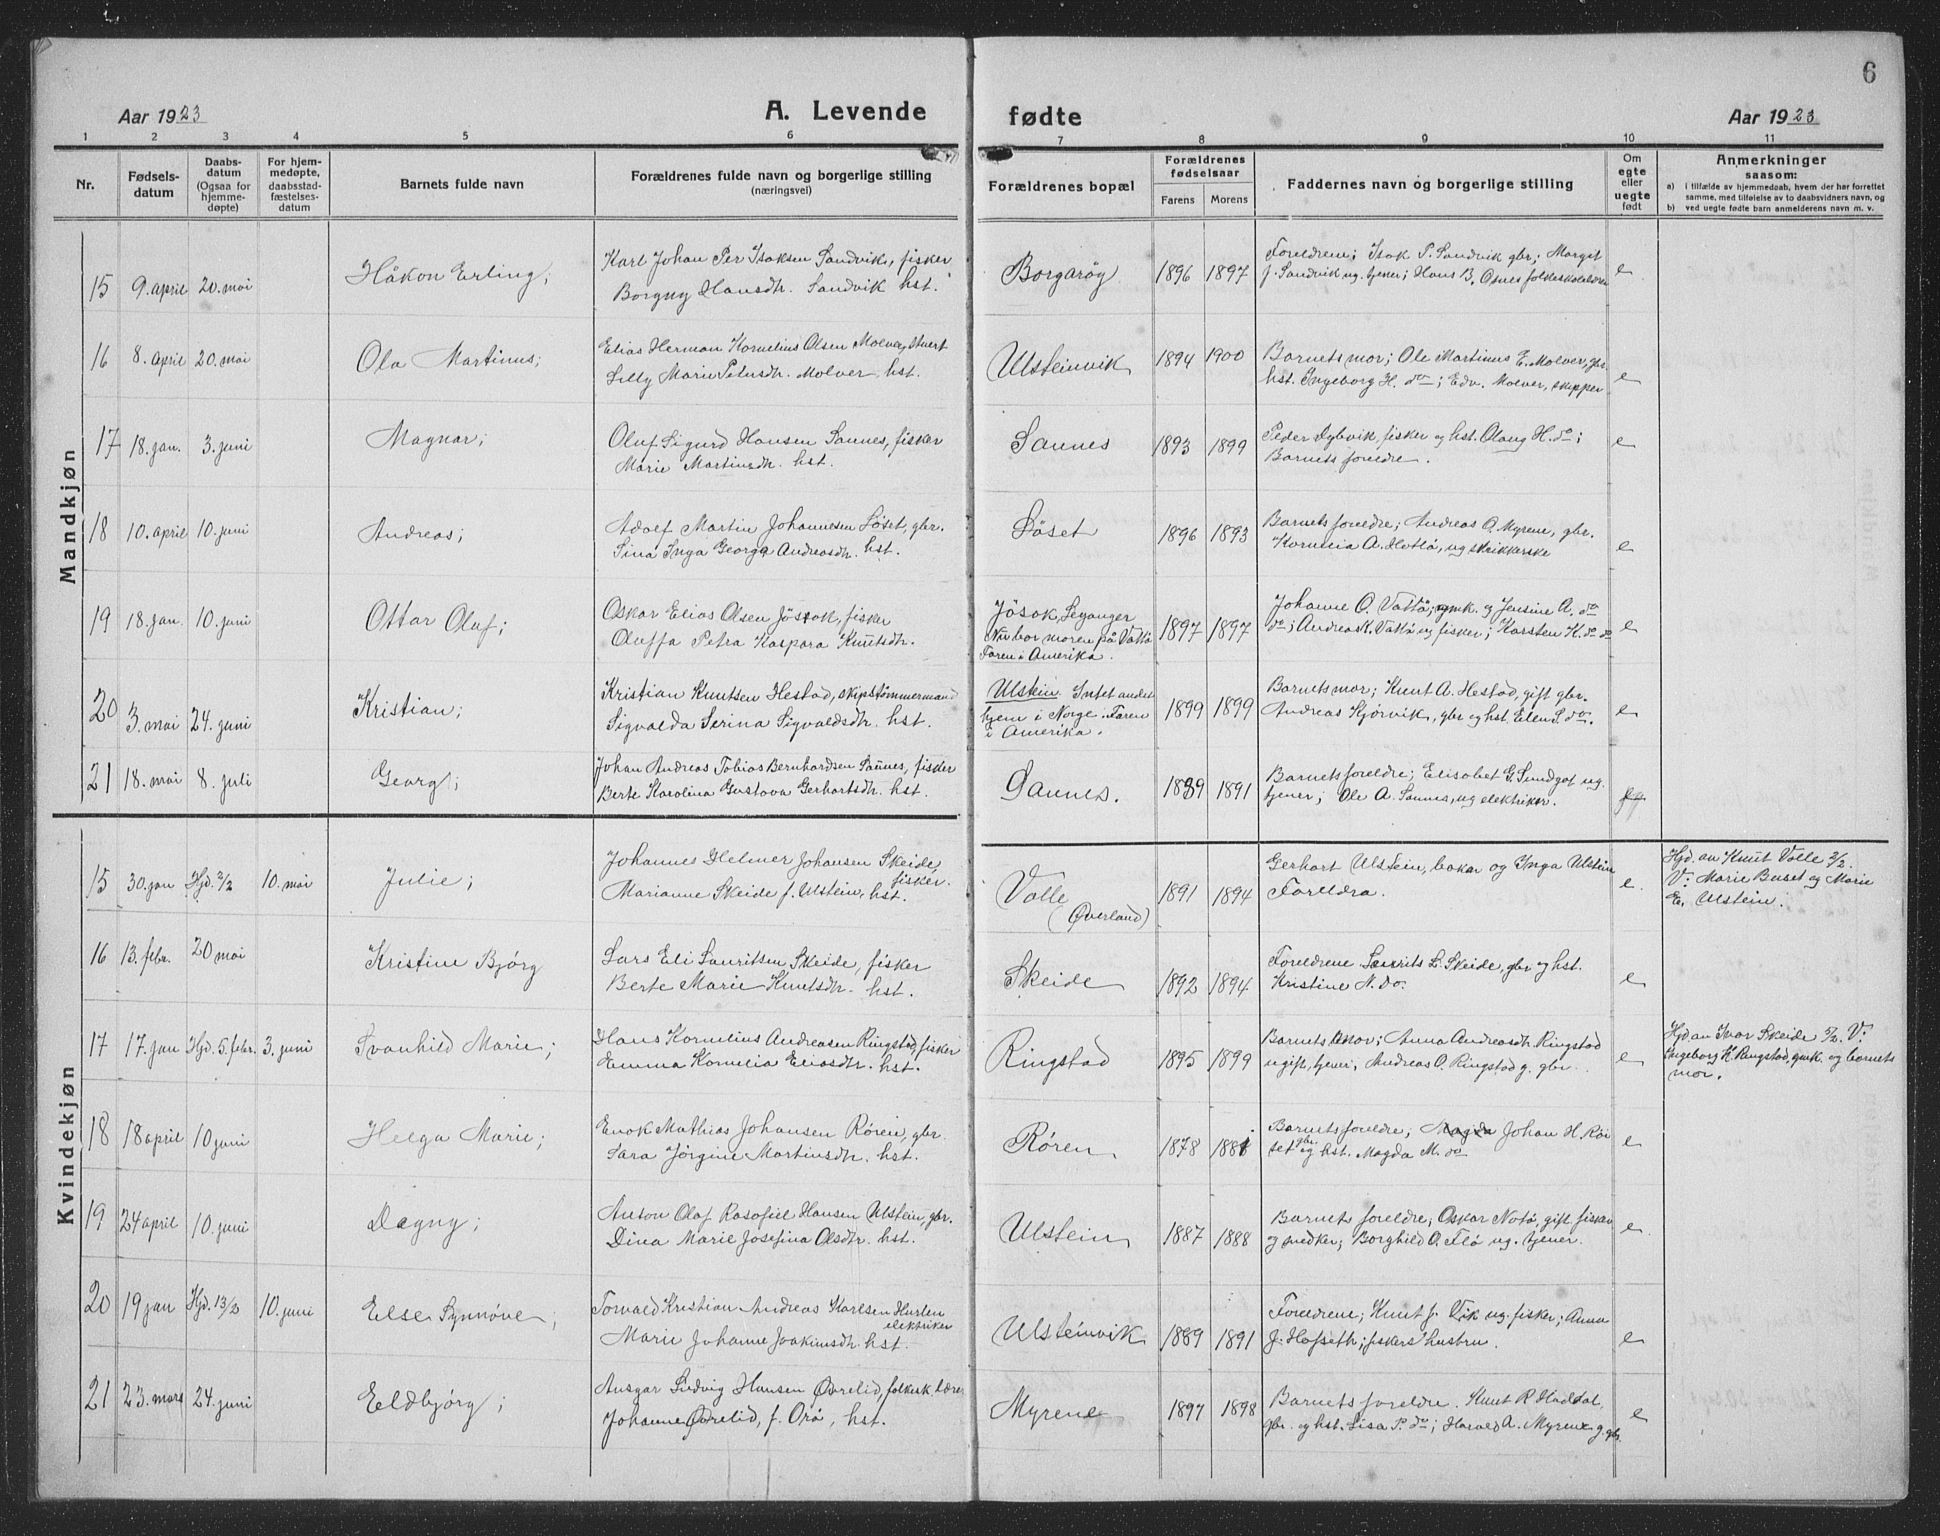 6
Aar 1923 A. Levende fødte Aar 1923
1 2 3 4 5 6 7 8 9 10 11
Nr.
Fødsels-
datum
Daabs-
datum
(Ogsaa for
hjemme-
døpte)
For hjem-
medøpte,
daabsstad-
fæstelses-
datum
Barnets fulde navn
Forældrenes fulde navn og borgerlige stilling
(næringsvei)
Forældrenes bopæl
Forældrenes
fødselsaar
Farens Morens
Faddernes navn og borgerlige stilling
Om
egte
eller
uegte
født
Anmerkninger
saasom:
a) i tilfælde av hjemmedaab, hvem der har forrettet
samme, med tilføielse av to daabsvidners navn, og
b) ved uegte fødte barn anmelderens navn m. v.
Mandkjøn
15 9. april 20. mai Håkon Erling;
Karl Johan Per Isaksen Sandvik, fisker
Borgny Hansdtr. Sandvik hst.
Borgarøy 1896 1897
Foreldrene; Isak P. Sandvik gbr; Margit
J. Sandvik ug. tjener; Hans B. Osnes folkeskolelærer
e
16 8. april 20. mai Ola Martinus;
Elias Herman Kornelius Olsen Molver,
Lilly Marie Petersdtr. Molver hst.
Ulsteinvik 1894 1900
Barnets mor; Ole Martinus E. Molver, gbr.
hst. Ingeborg H. do; Edv. Molver, skipper
e
17 18. jan. 3. juni Magnar;
Oluf Sigurd Hansen Saunes, fisker
Marie Martinsdtr. hst.
Saunes 1893 1899
Peder Dybvik, fisker og hst. Olaug H. do;
Barnets foreldre.
e
18 10. april 10. juni Andreas;
Adolf Martin Johannesen Løset, gbr.
Sina Inga Georga Andreasdtr. hst.
Løset 1896 1893
Barnets foreldre; Andreas O. Myrene, gbr.
Kornelia A. Hatlø, ug
e
19 18. jan. 10. juni Ottar Oluf;
Oskar Elias Olsen Jøsok, fisker
Oluffa Petra Kaspara Knutsdtr.
Jøsok, Leganger
Nu bor moren på Vattø
Faren i Amerika.
1897 1897
Johanne O. Vattø, gmk. og Jensine A. do
do; Andreas K. Vattø ug fisker; Karsten K. do do
e
20 3. mai 24. juni Kristian;
Kristian Knutsen Hestad, skipstømmermand
Sigvalda Serina Sigvaldsdtr. hst.
Ulstein. Intet andet
hjem i Norge. Faren
i Amerika.
1899 1899
Barnets mor; Knut A. Hestad, gift gbr.
Andreas Kjørvik, gbr og hst. Elen S. do.
e
21 18. mai 8. juli Georg;
Johan Andreas Tobias Bernhardsen Saunes, fisker
Berte Karolina Gustava Gerhartsdtr. hst.
Saunes. 1889 1891
Barnets foreldre; Elisabet G. Sundgot ug.
tjener; Ole A. Saunes, ug elektriker.
Kvindekjøn
15 30. jan Hjd. 2/2 10. mai Julie;
Johannes Helmer Johansen Skeide,
fisker.
Marianne Skeide f. Ulstein, hst.
Volle
(Øverland)
1891 1894
Gerhart Ulstein, bakar og Inga Ulstein
Foreldra.
e.
Hjd. av Knut Volle 2/2.
V: Marie Buset og Marie
E. Ulstein.
16 13. febr. 20 mai Kristine Bjørg
Lars Eli Lauritsen Skeide, fisker
Berte Marie Knutsdtr. hst.
Skeide 1892 1894.
Foreldrene. Laurits L. Skeide, gbr og hst.
Kristine N. Do.
e
17 17. jan Hjd. 5. febr. 3. juni Svanhild Marie;
Hans Kornelius Andreasen Ringstad, fisker
Emma Kornelia Eliasdtr. hst.
Ringstad 1895 1899
Barnets mor; Anna Andreasdtr. Ringstad
ugift, tjener; Andreas O. Ringstad g. gbr.
e
Hjd. av Ivar Skeide 5/2. V:
Ingeborg K. Ringstad, gmk. og barnets
mor.
18 18 april 10 juni Helga Marie;
Enok Mathias Johansen Røren, gbr.
Sara Jørgine Martinsdtr. hst.
Røren 1878 1881
Barnets foreldre; Johan H. Røi
set gbr og hst. Magda M. do
e
19 24 april 10. juni Dagny;
Anton Olaf Rasofiel Hansen Ulstein, gbr.
Dina Marie Josefina Olsdtr. hst.
Ulstein 1887 1888
Barnets foreldre; Oskar Notø, gift fisker
og snedker; Borghild O. Flø ug. tjener.
e
20 19 jan Hjd. 13/2 10. juni Else Synnøve;
Torvald Kristian Andreas Karlsen Hurlen
elektriker
Marie Johanne Joakimsdtr. hst.
Ulsteinvik 1889 1891
Foreldrene; Knut J. Vik ug. fisker; Anna
J. Hofseth; fiskers hustru.
e
21 23. mars 24. juni Eldbjørg;
Ansgar Ludvig Hansen Øvrelid, folkesk. lærer
Johanne Øvrelid, f. Orø, hst.
Myrene 1897 1898
Barnets foreldre. Knut R. Haddal,
gbr. og hst. Lisa P. do; Harald A. Myrene g. gbr.
e